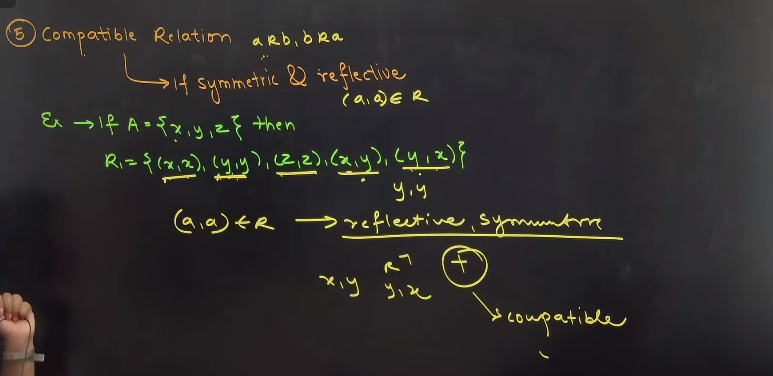 ⑤ Compatible Relation aRb, bRa
→ If symmetric & reflective
(a,a) ∈ R
Ex → If A = {x, y, z} then
R₁ = {(x,x), (y,y), (z,z), (x,y), (y,x)}
y,y
(a,a) ∈ R → reflective, symmetric
x,y y,x +
→ compatible